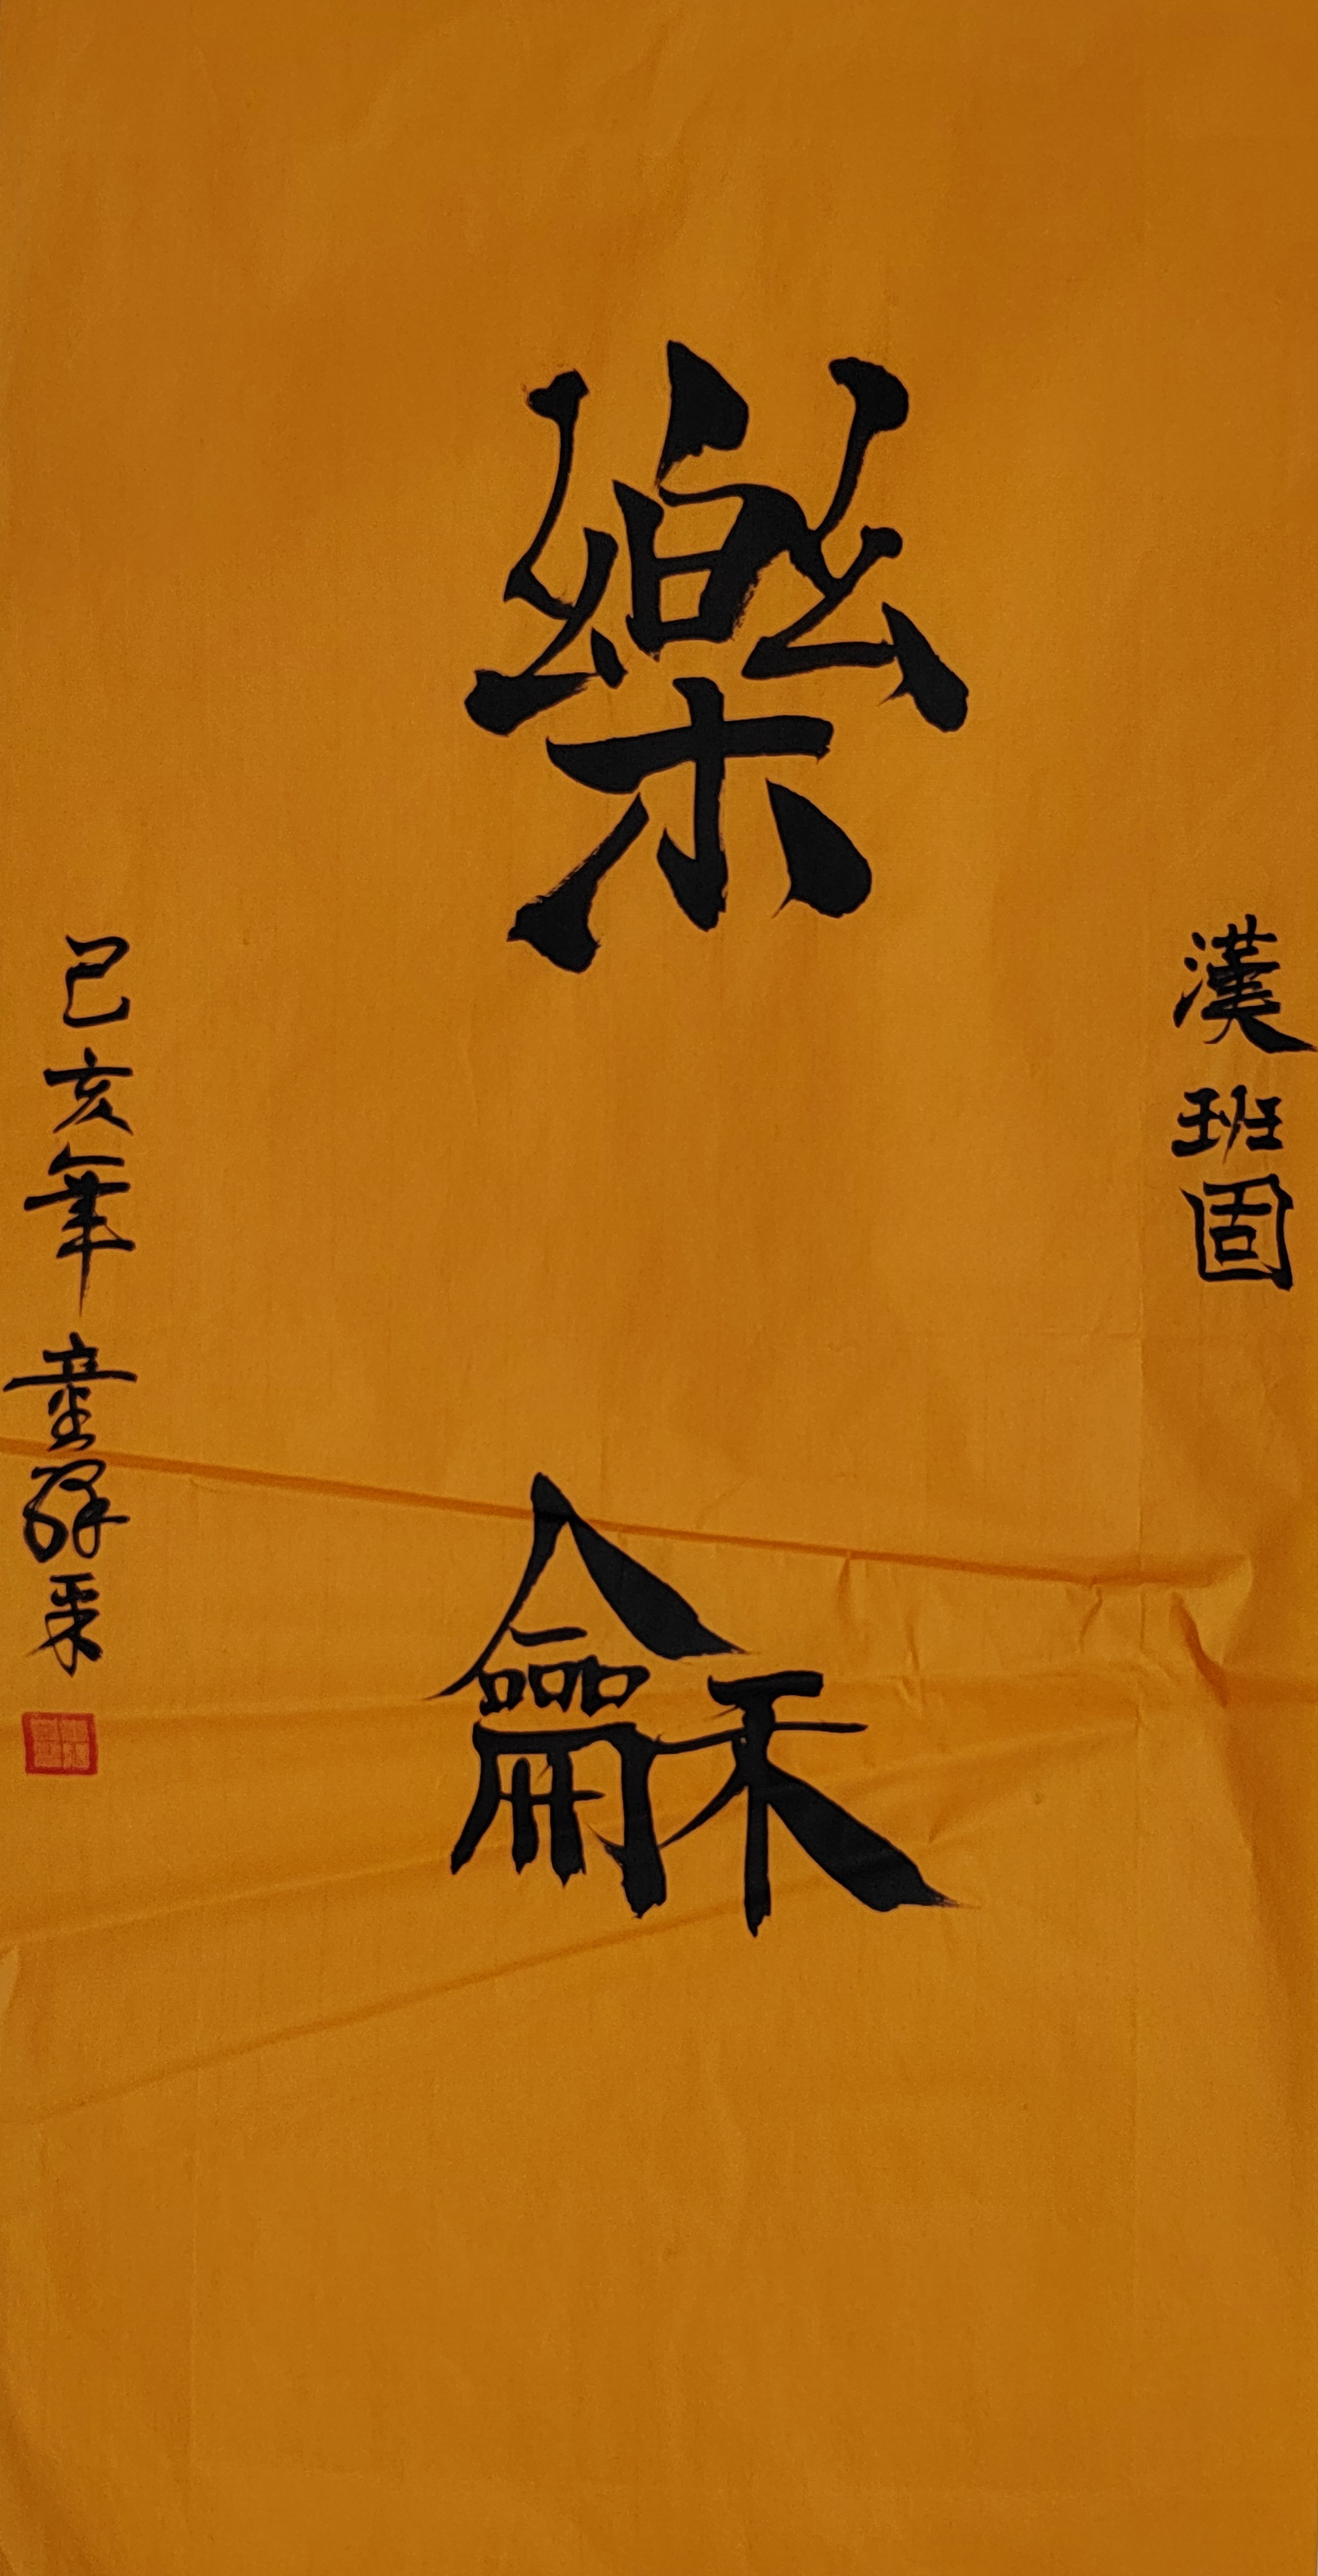 漢班固
樂龢
己亥年童